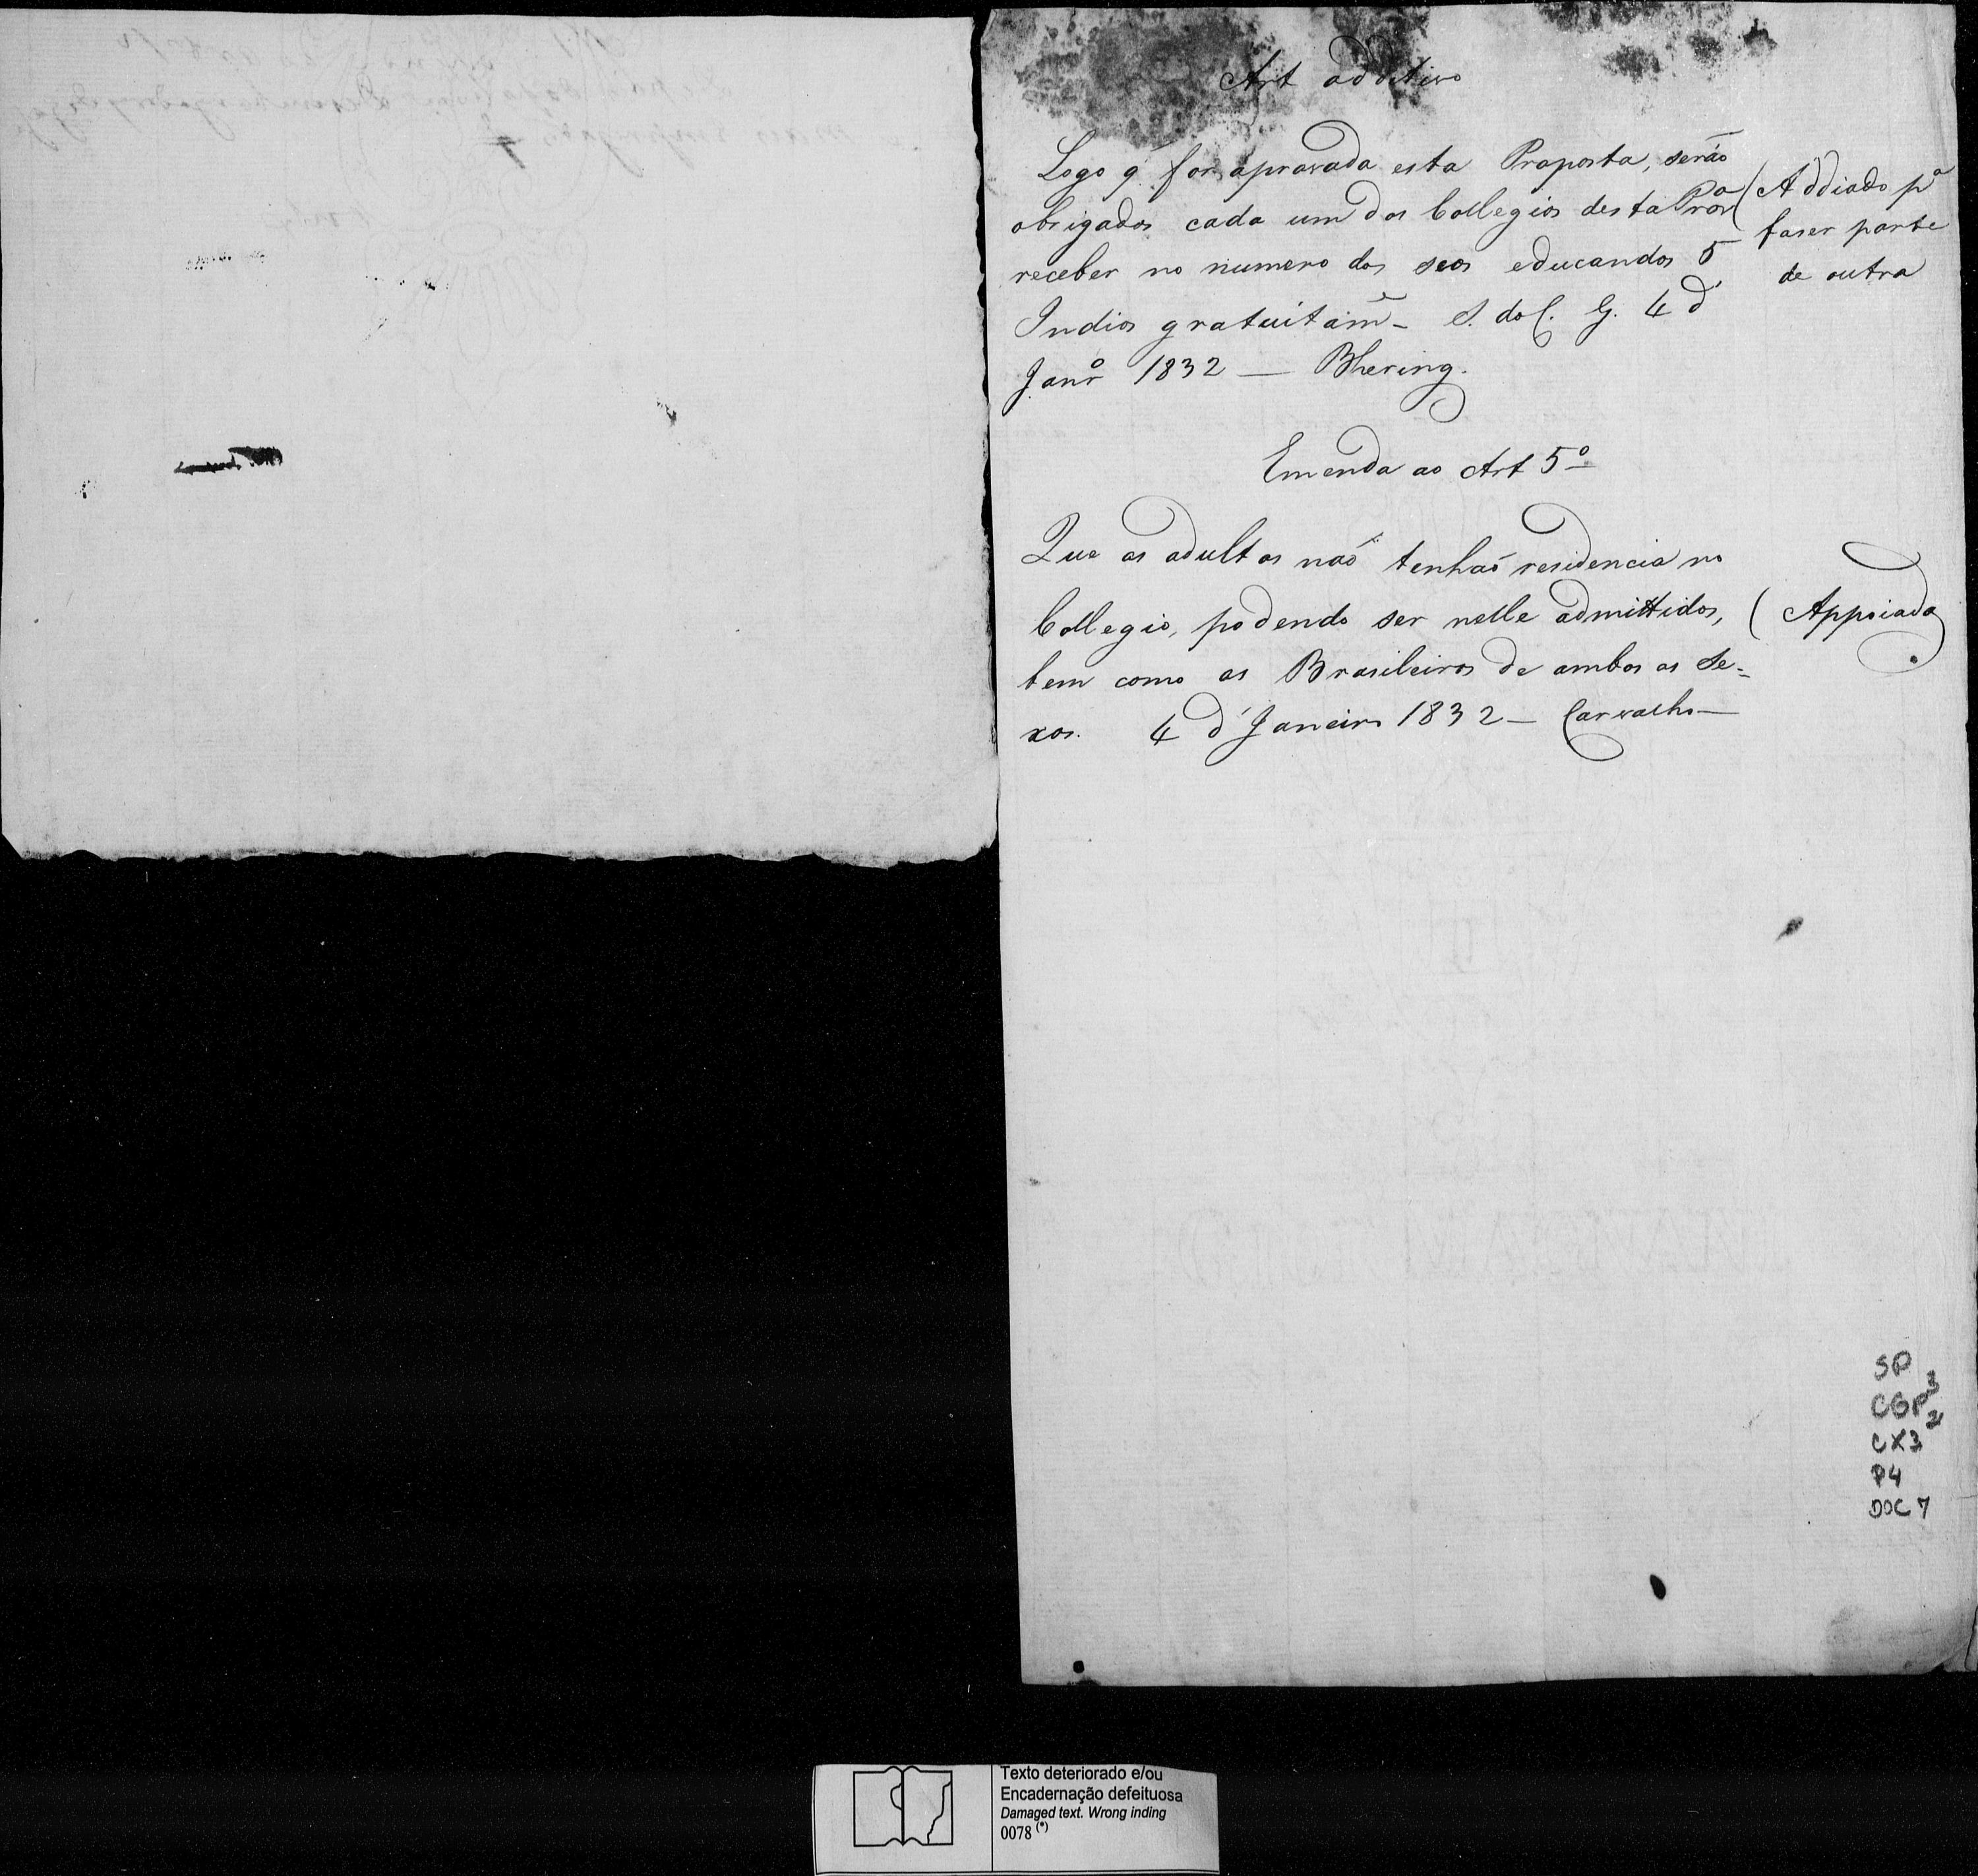 Art additivo
Logo q̃ for aprovada esta Proposta, serão
obrigados cada um dos Collegios desta Provª
receber no numero dos seos educandos 5
Indios gratuitam̃e - S. do C. G. 4 d'
Janrº 1832 — Bhering.
(Addiado pª
faser parte
de outra
Emenda ao Art 5º
Que os adultos não tenhaõ residencia no
Collegio, podendo ser nelle admittidos,
bem como os Brasileiros de ambos os Se-
xos. 4 d'Janeiro 1832 — Carvalho —
(Appoiada
SP
CGP 3
2
CX3
P4
DOC 7
Texto deteriorado e/ou
Encadernação defeituosa
Damaged text. Wrong inding
0078 (*)